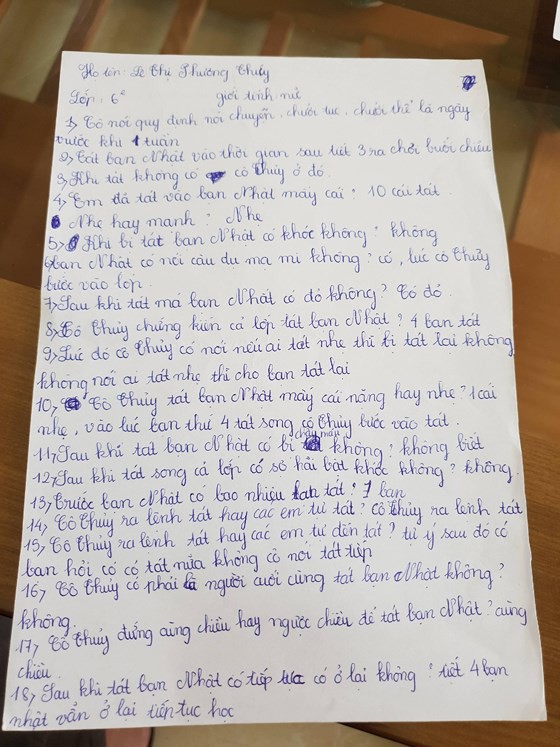 Họ tên: Lê Thị Phương Thúy
Lớp: 6² giới tính nữ
1, Cô nói quy định nói chuyện, chưởi tục, chưởi thề là ngày
trước khi 1 tuần
2, Tát bạn Nhật vào thời gian sau tiết 3 ra chơi buổi chiều
3, Khi tát không có cô Thủy ở đó.
4, Em đã tát vào bạn Nhật mấy cái? 10 cái tát.
Nhẹ hay mạnh? Nhẹ
5, Khi bị tát bạn Nhật có khóc không? không
6, bạn Nhật có nói câu đụ mạ mi không? có, lúc cô Thủy
bước vào lớp.
7, Sau khi tát má bạn Nhật có đỏ không? Có đỏ.
8, Cô Thủy chứng kiến cả lớp tát bạn Nhật? 4 bạn tát
9, Lúc đó cô Thủy có nói nếu ai tát nhẹ thì bị tát lại không
không nói ai tát nhẹ thì cho bạn tát lại
10, Cô Thủy tát bạn Nhật mấy cái nặng hay nhẹ? 1 cái
nhẹ, vào lúc bạn thứ 4 tát song cô Thủy bước vào tát.
11, Sau khi tát bạn Nhật có bị chảy máu không? không biết
12, Sau khi tát song cả lớp có sợ hãi bật khóc không? không.
13, Trước bạn Nhật có bao nhiêu bạn tát? 7 bạn
14, Cô Thủy ra lệnh tát hay các em tự tát? cô Thủy ra lệnh tát
15, Cô Thủy ra lệnh tát hay các em tự đến tát? tự ý sau đó có
bạn hỏi cô có tát nữa không cô nói tát tiếp
16, Cô Thủy có phải là người cuối cùng tát bạn Nhật không?
không.
17, Cô Thủy đứng cùng chiều hay ngược chiều để tát bạn Nhật? cùng
chiều.
18, Sau khi tát bạn Nhật có tiếp tục có ở lại không? tiết 4 bạn
nhật vẫn ở lại tiến tục học